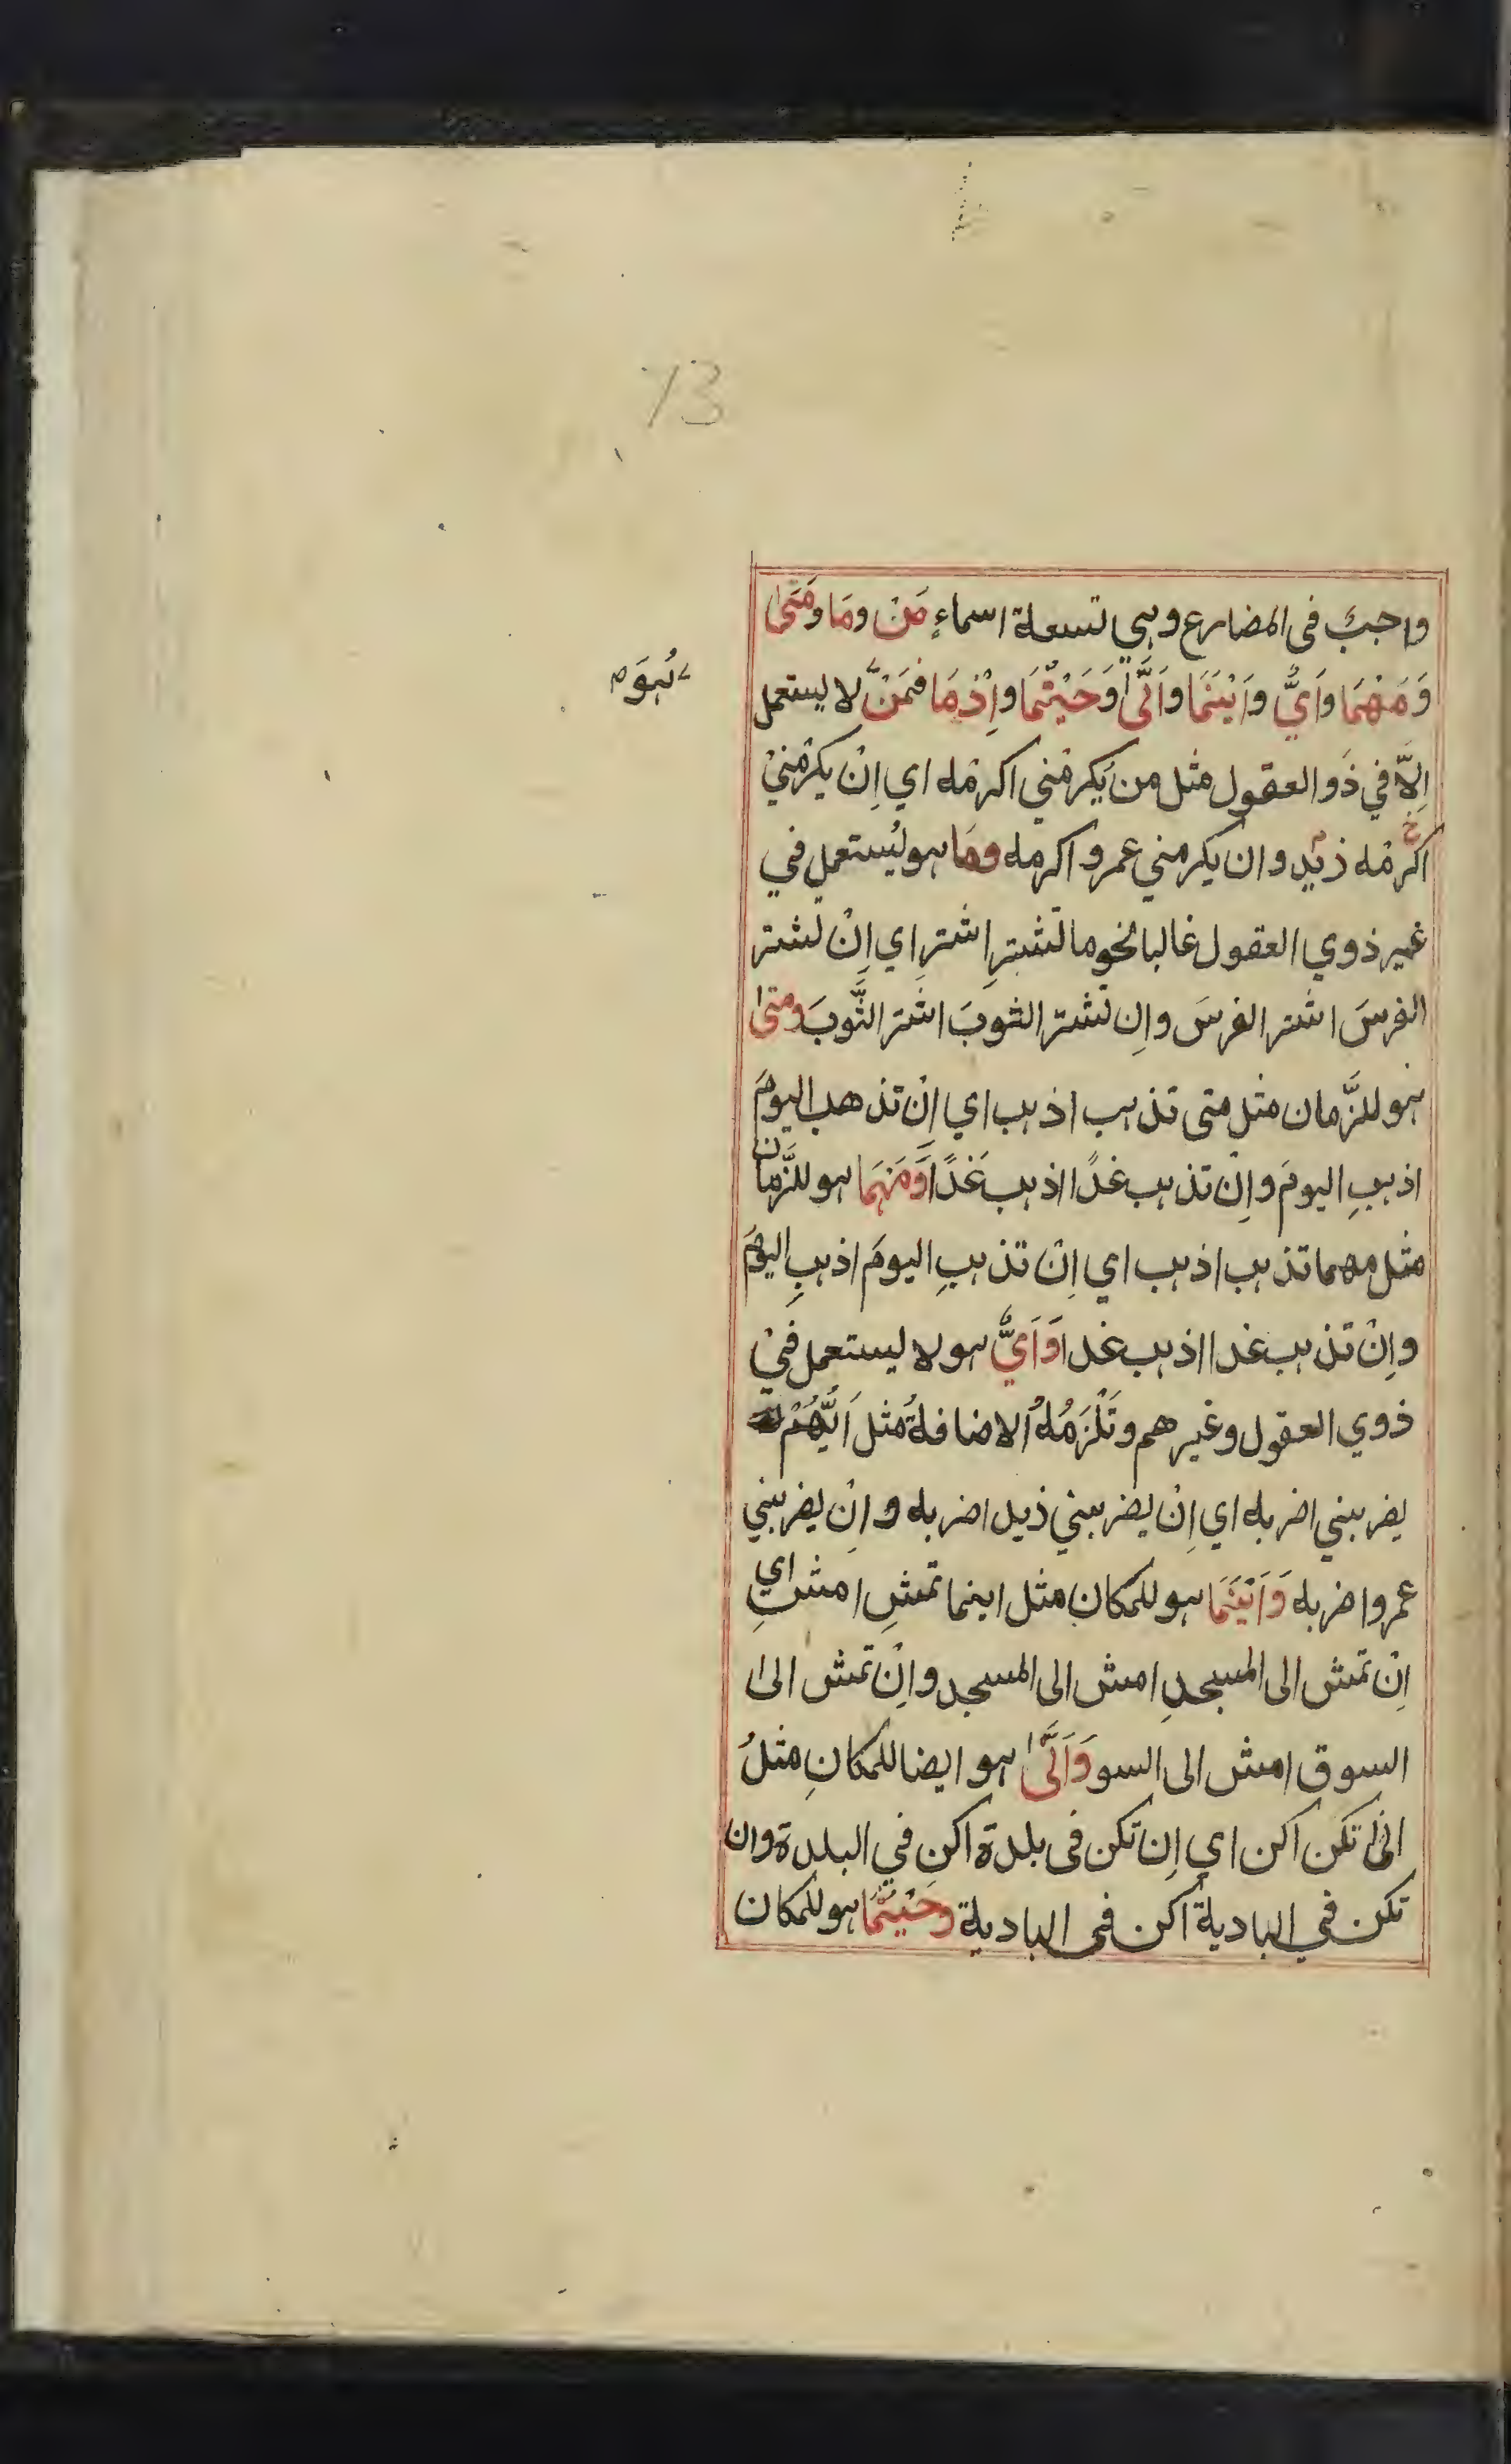 73
واجبٌ فى المضارع وهى تسعة اسماءٍ مَنْ ومَا ومَتٰى
وَمَهْمَا وَاَيٌّ وَاَيْنَمَا وَاَنّٰى وَحَيْثُمَا وَاِذْمَا فمَنْ لا يستعمل
هُوَ
اِلاَّ في ذَو العقول مثل من يَّكرمْني اكرمْه اي اِنْ يكرمْنيْ
اكرمْه زيدٍ وان يكرمني عمرو اكرمه ومَا هو يُستعمل في
غير ذوي العقول غالبا نحو ما تَشترِ اشترِ اي اِنْ تشتر
الفرسَ اشتر الفرسَ واِن تشتر الثوبَ اشتر الثَّوبَ ومتٰى
هو للزَّمان مثل متى تذهب اذهب اي اِنْ تذهب اليومَ
اذهبِ اليومَ واِنْ تذهب غدًا اذهب غَدًا وَمَهْمَا هو للزَّمان
مثل مهما تذهب اذهب اي اِنْ تذهبِ اليومَ اذهبِ اليومَ
واِنْ تذهب غدا اذهب غدا وَاَيٌّ هو لا يستعمل فيْ
ذوي العقول وغيرهم وتَلْزَمُهُ الاضافةُ مثل اَيُّهُمْ
يضربني اضربه اي اِنْ يضربني زيد اضربه و اِنْ يضربني
عمرو اضربه وَاَيْنَمَا هو للمكانِ مثل اينما تمشِ امشِ اي
اِنْ تمش الى المسجدِ امش الى المسجد واِنْ تمش الىٰ
السوق امش الى السو وَاَنّٰى هو ايضا للمكانِ مثلُ
انىٰ تكن اكن اي اِن تكن فى بلدة اكن في البلدة وان
تكن في البادية اكن فى البادية وحَيْثُمَا هو للمكان